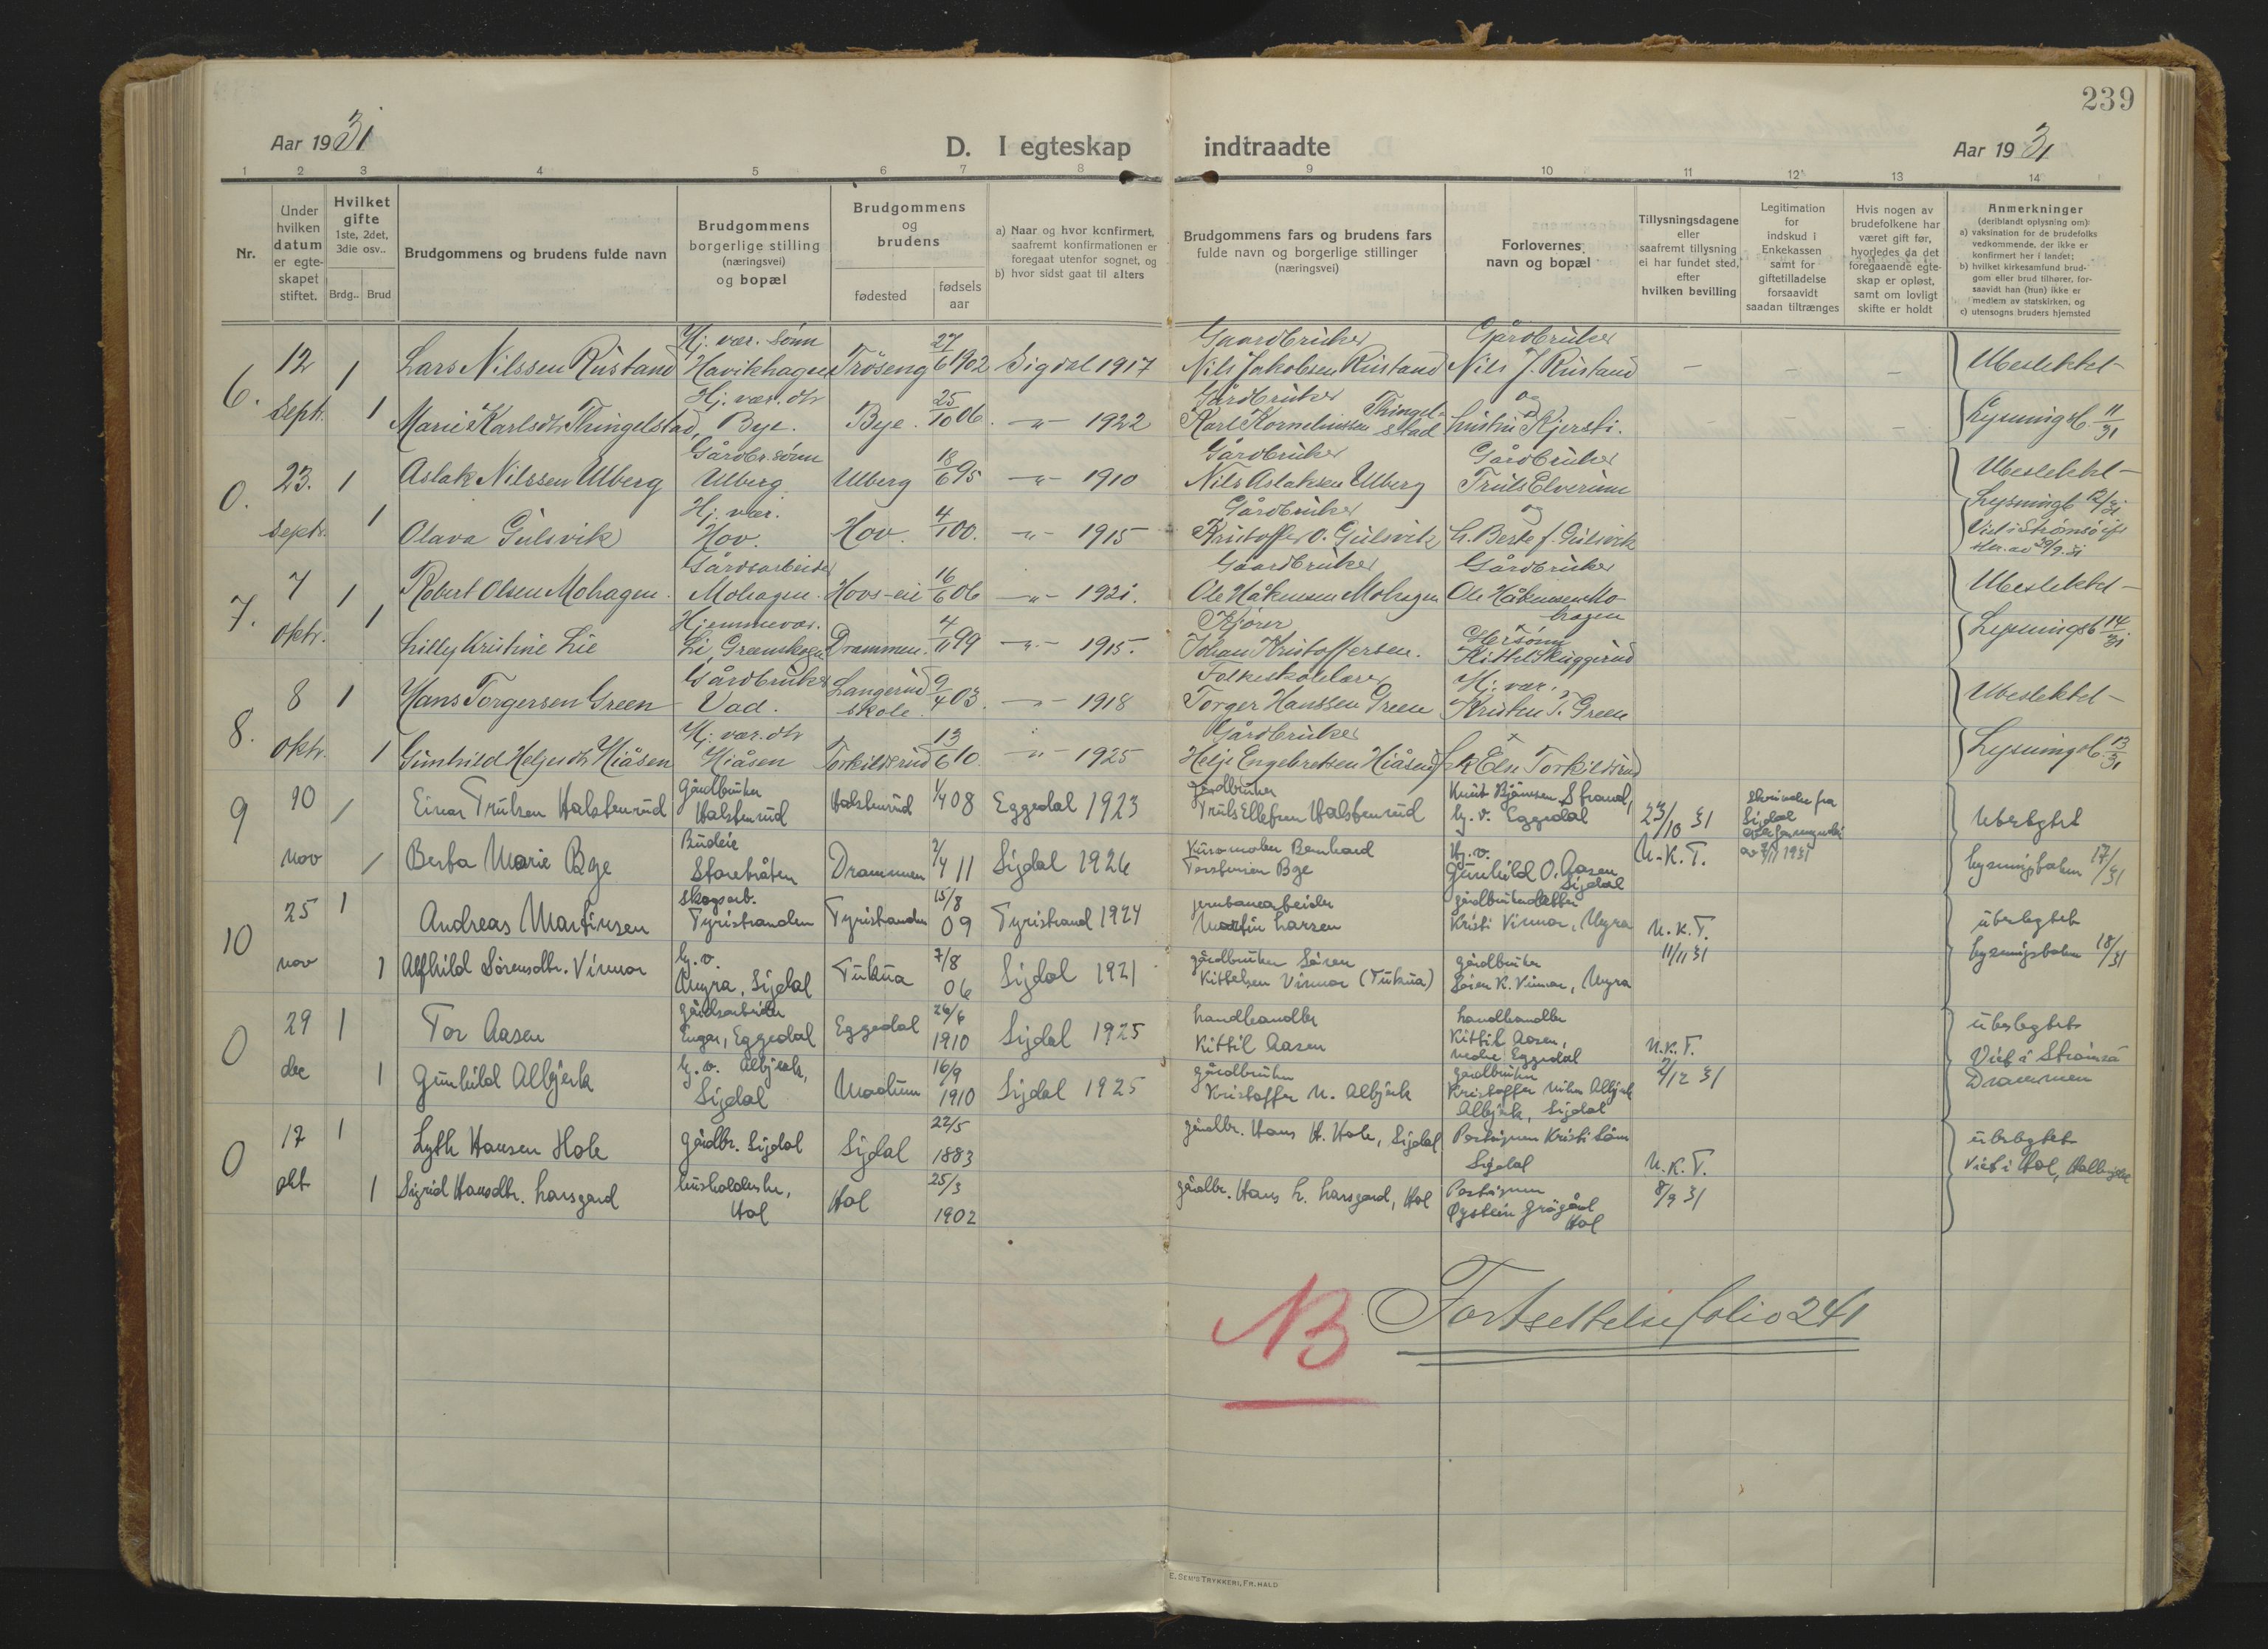 239
Aar 1931
D. I egteskap indtraadte
Aar 1931
1 2 3 4 5 6 7 8 9 10 11 12 13 14
Nr.
Under hvilken datum er egteskapet stiftet.
Hvilket gifte 1ste, 2det, 3die osv..
Brdg.. Brud
Brudgommens og brudens fulde navn
Brudgommens borgerlige stilling (næringsvei) og bopæl
Brudgommens og brudens
fødested
fødsels aar
a) Naar og hvor konfirmert, saafremt konfirmationen er foregaat utenfor sognet, og
b) hvor sidst gaat til alters
Brudgommens fars og brudens fars fulde navn og borgerlige stillinger (næringsvei)
Forlovernes navn og bopæl
Tillysningsdagene eller saafremt tillysning ei har fundet sted, efter hvilken bevilling
Legitimation for indskud i Enkekassen samt for giftetilladelse forsaavidt saadan tiltrænges
Hvis nogen av brudefolkene har været gift før, hvorledes da det foregaaende egteskap er opløst, samt om lovligt skifte er holdt
Anmerkninger
(deriblandt oplysning om:
a) vaksination for de brudefolks vedkommende, der ikke er konfirmert her i landet;
b) hvilket kirkesamfund brudgom eller brud tilhører, forsaavidt han (hun) ikke er medlem av statskirken, og
c) utensogns bruders hjemsted
Hj. vær. sønn 27 Gaardbruker Gårdbruker
6. 12 1 Lars Nilssen Rustand Havikhagen Trøseng 6 1902 Sigdal 1917 Nils Jakobsen Rustand Nils J. Rustand - - - Ubeslektet -
Hj. vær. dtr 25 Gårdbruker og
sept. 1 Marie Karlsdtr Thingelstad, Bye. Bye. 10 06. -"- 1922 Karl Kornelinssen Thingelstad Kjersti. - - - Lysningsb. 11/31
Gårdbr. sønn 18 Gårdbruker Gårdbruker
0. 23. 1 Aslak Nilssen Ulberg Ulberg Ulberg 6 95 -"- 1910 Nils Aslaksen Ulberg Truls Elverum Ubeslektet -
Hj. vær. 4 Gårdbruker og Lysningsb 12/31
septr. 1 Olava Gulsvik Hov. Hov. 1 00. -"- 1915 Kristoffer O. Gulsvik Berte f. Gulsvik Viet i Strømsø
29/9.31
Gårdsarbeider 16 Gaardbruker Gårdbruker
7. 7 1 Robert Olsen Mohagen. Mohagen. Hovs-eie 6 06 -"- 1921. Ole Håkensen Mohagen Ole Håkensen Mohagen Ubeslektet -
Hjemmevær. 4 Kjører
oktr. 1 Lilly Kristine Lie Li Grønskogen Drammen. 11 99 -"- 1915. Johan Kristoffersen. Kittel Skuggerud Lysningsb 14/31
Gårdbruker 9 Folkeskolelærer Hj. vær.
8. 8 1 Hans Torgersen Green Vad. Langerud skole. 4 03. -"- 1918 Torger Hanssen Green Kristen T. Green Ubeslektet -
Hj. vær. dtr 13 Gårdbruker
oktr. 1 Gunhild Helgesdtr Hiåsen Hiåsen Torkildsrud 6 10. -"- 1925 Helje Engebretsen Hiåsen Torkildsrud Lysningsb. 13/31
gårdbruker gårdbruker Knut Bjørnsen Strand,
9 10 / Einar Trulsen Halstenrud Halstenrud Halstenrud 1/4 08 Eggedal 1923 Truls Ellefsen Halstenrud hj. v. Eggedal 23/10 31 Skrivelse fra Sigdal ubeslegtet
Budeie Hj. v. N.K.T. 1931
nov / Berta Marie Bye Storebråten Drammen 2/4 11 Sigdal 1926 Bernhard Bye Gunhild O. Aasen Sigdal lysningsboken 17/31
Skogsarb. 15/8 jernbanearbeider gårdbrukerdatter
25 1 Andreas Martinsen Tyristranden Tyristranden 09 Tyristrand 1924 Martin Larsen Kristi Vinnor, Myra N.K.T. ubeslegtet
10 hj. v. 7/8 gårdbruker Søren gårdbruker 11/11 31
nov 1 Alfhild Sørensdtr. Vinnor Myra, Sigdal Tukua 06 Sigdal 1921 Kittelsen Vinnor (Tukua) Søren K. Vinnor, Myra lysningsboken 18/31
gårdsarbeider 26/6 handelmandler landhandler
0 29 1 Tor Aasen Enger, Eggedal Eggedal 1910 Sigdal 1925 Kittil Aasen Kittil Aasen, nedre Eggedal N.K.T. ubeslegtet
hj. v. Albjerk, 16/9 gårdbruker gårdbruker 2/12 31 Viet i Strømsø
des 1 Gunhild Albjerk Sigdal Modum 1910 Sigdal 1925 Kristoffer N. Albjerk Kristoffer Nilsen Albjerk Drammen
Albjerk, Sigdal
22/5
0 17 1 Lyth Hansen Hole Gårdbr. Sigdal Sigdal 1883 gårdbr. Hans H. Hole, Sigdal Sigdal N.K.T. ubeslegtet
husholderske, 25/3 8/9 31 viet i Hol, Hallingdal
okt 1 Sigrid Hansdtr. Larsgard Hol Hol 1902 gårdbr. Hans L. Larsgard, Hol Øystein Grøgård Hol
NB Fortsettelse folio 241
E. SEM'S TRYKKERI, FR. HALD